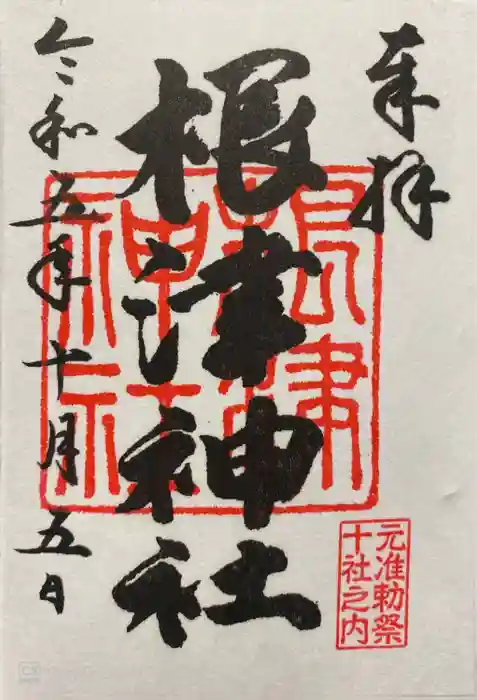 奉拝
根津神社
根津神社
元准勅祭
十社之内
令和五年十月五日